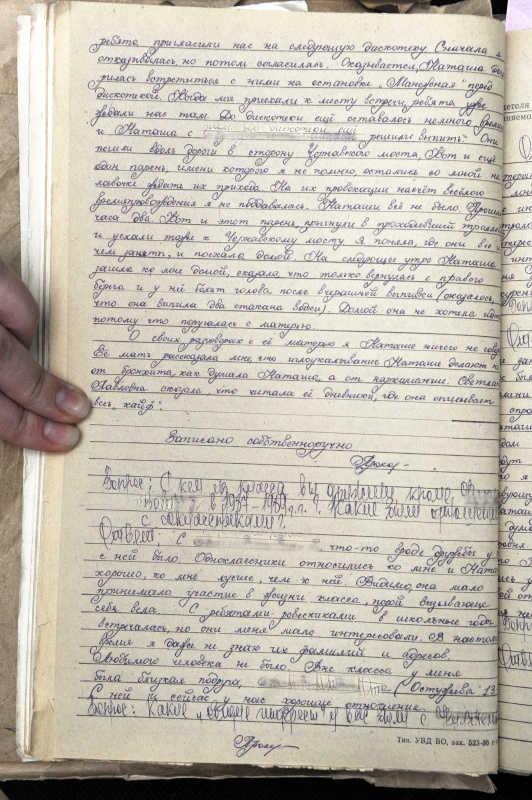 ребята пригласили нас на следующую дискотеку. Сначала я
отказывалась, но потом согласилась. Оказывается, Наташа дого
рилась встретиться с ними на остановке „Манежная" перед
дискотекой. Когда мы приехали к месту встречи, ребята уже
ждали нас там. До дискотеки ещё оставалось немного времени
и Наташа с решили „выпить". Они
пошли вдоль дороги в сторону Чернавского моста. Кот и ещё
один парень, имени которого я не помню, остались со мной на
лавочке ждать их прихода. На их провокации насчёт весёлого
времяпровождения я не поддавалась. Наташи всё не было. Прошло
часа два. Кот и этот парень прыгнули в проезжавший трамвай
и уехали тоже к Чернавскому мосту. Я поняла, где они все и
чем заняты, и поехала домой. На следующее утро Наташа
зашла ко мне домой, сказала, что только вернулась с правого
берега и у неё болит голова после вчерашней выпивки (оказалось,
что она выпила два стакана водки). Домой она не хотела идти
потому что поругалась с матерью.
О своих разговорах с её матерью я Наташе ничего не гово
Её мать рассказала мне, что иглоукалывание Наташе делают не
от бронхита, как думала Наташа, а от наркомании. Светлана
Павловна сказала, что читала её дневники, где она описывает
весь „кайф".
Записано собственноручно
Вопрос: С кем из класса вы дружили, кроме
в 1987-1989 г.г.? Какие были отношения
с одноклассниками?
Ответ: С что-то вроде дружбы у
с ней было. Одноклассники относились ко мне и Ната
хорошо, ко мне лучше, чем к ней. Видимо, она мало
принимала участие в жизни класса, порой вызывающе
себя вела. С ребятами-ровесниками в школьные годы
встречалась, но они меня мало интересовали. В настоящ
время я даже не знаю их фамилий и адресов.
Любимого человека не было. Вне класса у меня
была близкая подруга, (Остужева 13
С ней и сейчас у нас хорошие отношения.
Вопрос: Какие „общие интересы" у вас были с
Тип. УВД ВО, зак. 523-86 г